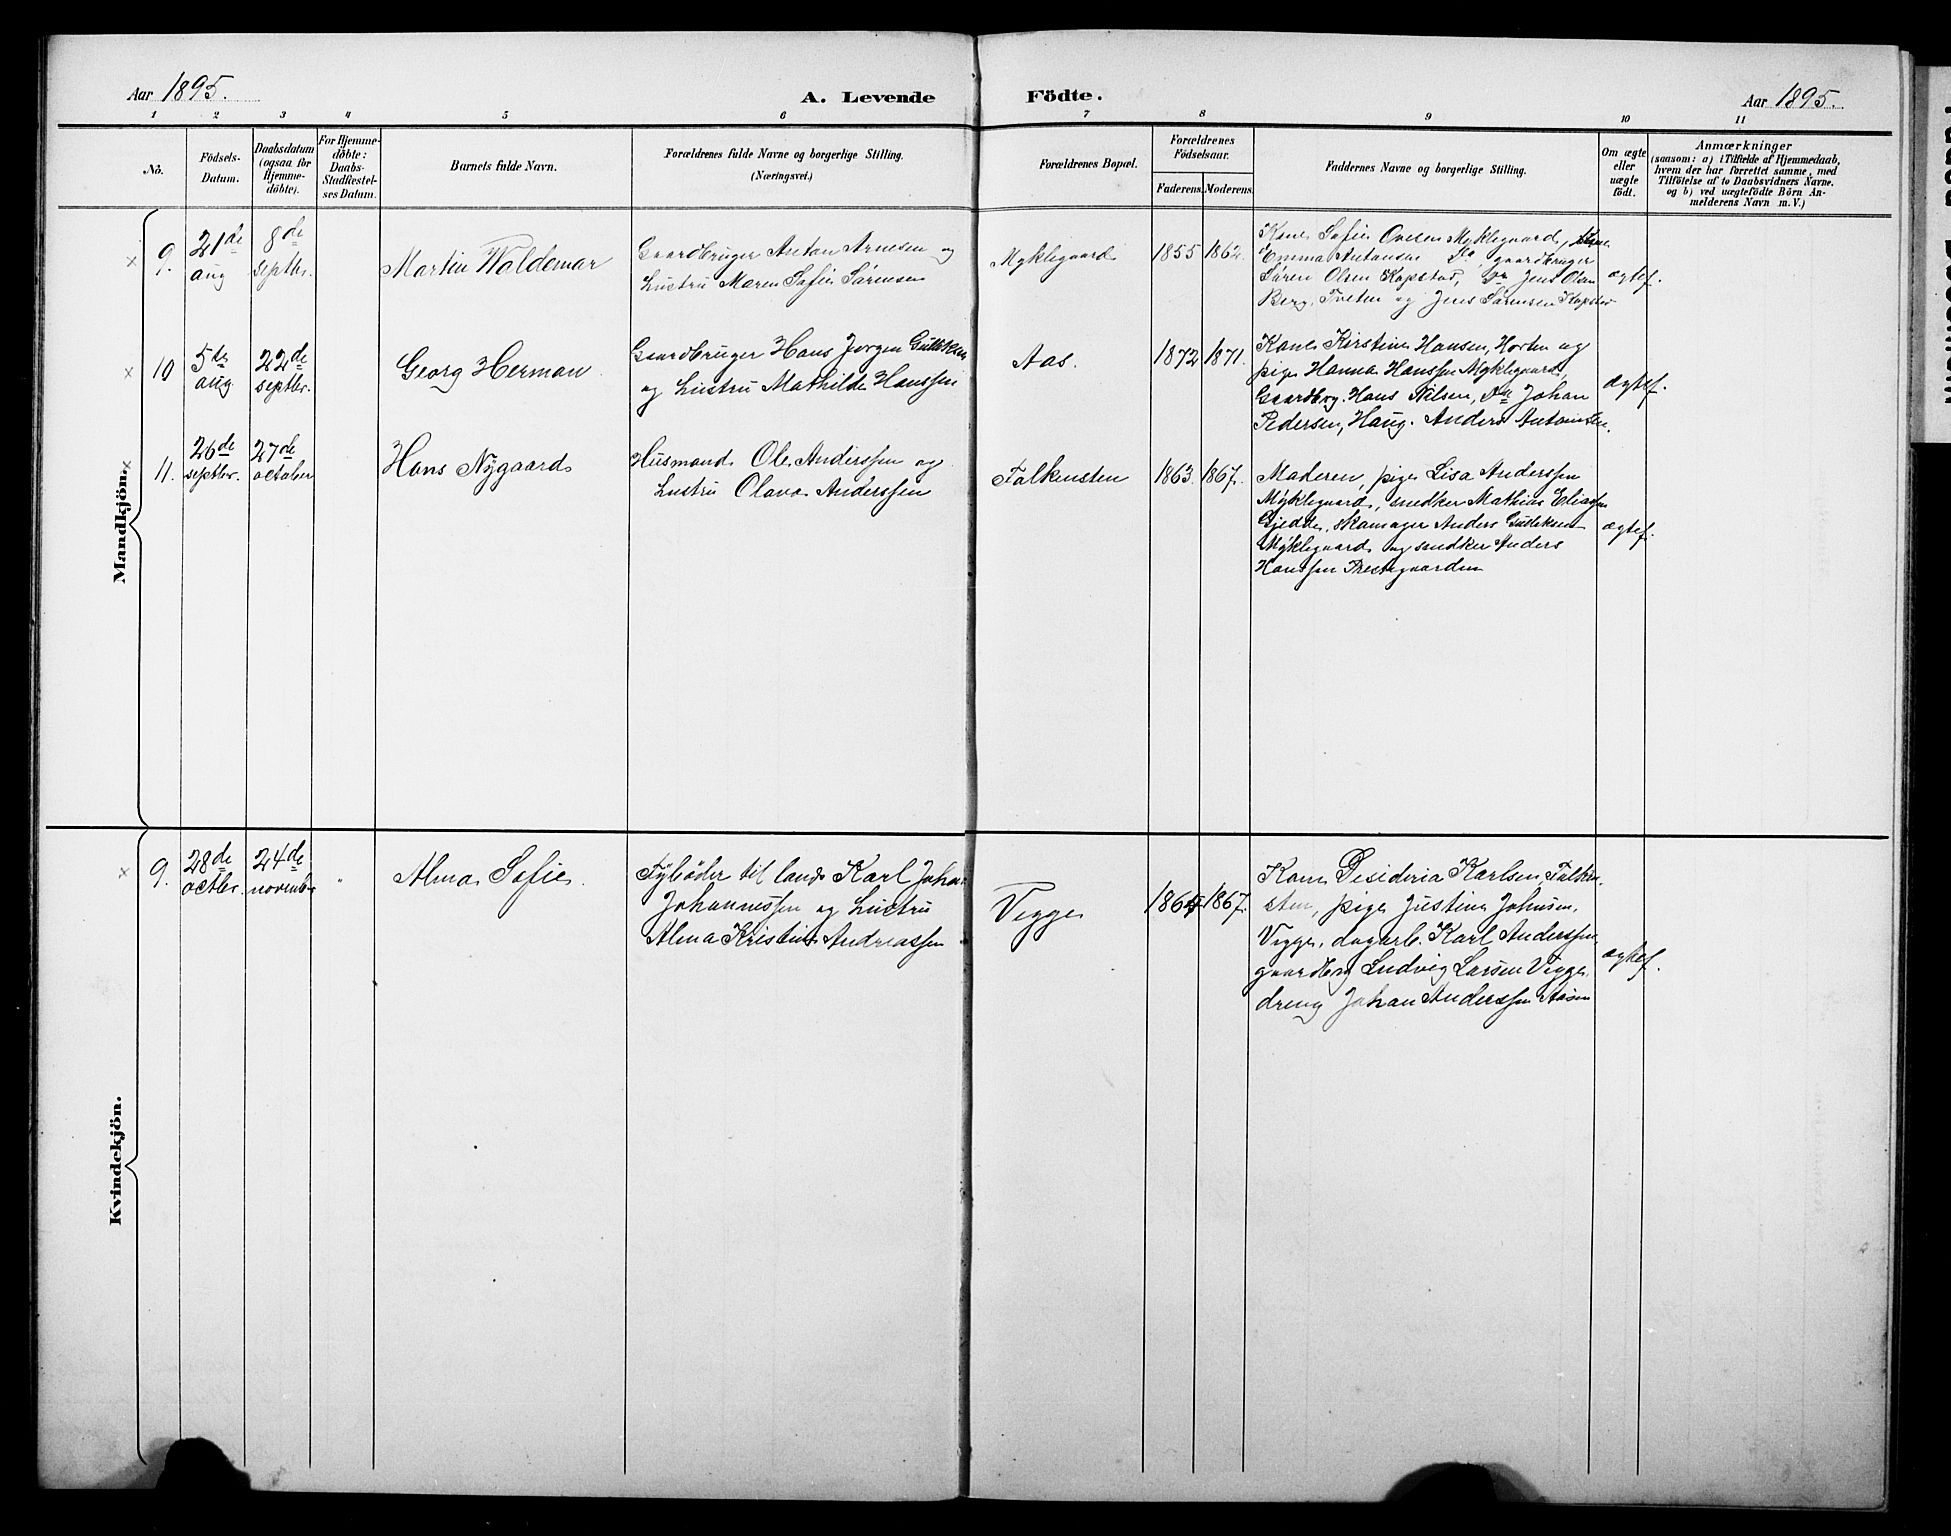 Aar 1895. A. Levende Födte. Aar 1895.
1 2 3 4 5 6 7 8 9 10 11
No.
Födsels-
Datum.
Daabsdatum
(ogsaa for
Hjemme-
döbte).
For Hjemme-
döbte:
Daabs-
Stadfestel-
ses Datum.
Barnets fulde Navn.
Forældrenes fulde Navne og borgerlige Stilling.
(Næringsvei.)
Forældrenes Bopæl.
Forældrenes
Födselsaar.
Faderens. Moderens.
Faddernes Navne og borgerlige Stilling.
Om ægte
eller
uægte
födt.
Anmærkninger
(saasom: a) i Tilfælde af Hjemmedaab,
hvem der har forrettet samme, med
Tilföielse af to Daabsvidners Navne.
og b) ved uægtefödte Börn An-
melderens Navn m. V.)
Mandkjön.
× 9.
21de
aug
8de
septbr.
Martin Waldemar
Gaardbruger Anton Arnesen og
Hustru Maren Sofie Sørensen
Myklegaard
1855 1862.
Kone Sofie Ovesen Myklegaard,
Emma Antonsen Do gaardbruger
Søren Olsen Kopstad, Do Jens Olsen
Berg, Tveten og Jens Sørensen Kopstad
ægtef.
× 10
5te
aug
22de
septbr.
Georg Herman
Gaardbruger Hans Jørgen Gulliksen
og Hustru Mathilde Hanssen
Aas.
1872 1871.
Kone Kirstine Hansen, Horten og
pige Hanna Hanssen Myklegaard,
Gaardbrg. Hans Nilsen, Do Johan
Pedersen, Haug. Anders Antonsen.
ægtef.
× 11.
26de
septbr.
27de
october
Hans Nygaard
Husmand Ole Anderssen og
Hustru Olava Anderssen
Falkensten
1863. 1867.
Moderen, pige Lisa Anderssen
Myklegaard, snedker Mathias Eliassen
Gjedde, skomager Anders Gulliksen
Myklegaard og snedker Anders
Hanssen Prestegaarden
ægtef.
Kvindekjön.
× 9.
28de
octbr.
24de
november
"
Alma Sofie.
Fyrbøder til lands Karl Johan
Johannessen og Hustru
Alma Kristine Andreassen
Vegge
1864 1867.
Kone Desideria Karlsen, Falken-
sten, pige Justine Johnsen,
Vegge, dagarb. Karl Anderssen
gaardbrg Ludvig Larsen Vegge.
dreng Johan Anderssen Aasen
ægtef.